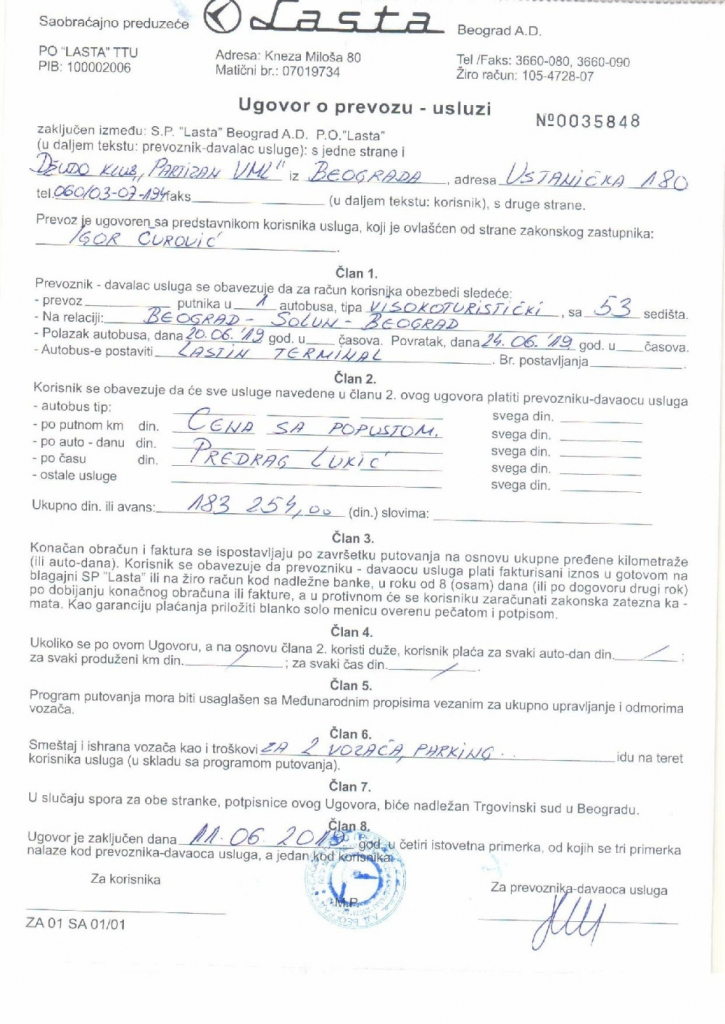 Saobraćajno preduzeće Lasta Beograd A.D.
PO "LASTA" TTU
PIB: 100002006
Adresa: Kneza Miloša 80
Matični br.: 07019734
Tel /Faks: 3660-080, 3660-090
Žiro račun: 105-4728-07
Ugovor o prevozu - usluzi
№0035848
zaključen između: S.P. "Lasta" Beograd A.D. P.O."Lasta"
(u daljem tekstu: prevoznik-davalac usluge): s jedne strane i
DŽUDO KLUB „PARTIZAN VML" iz BEOGRADA, adresa USTANIČKA 180
tel. 060/03-07-194 faks (u daljem tekstu: korisnik), s druge strane.
Prevoz je ugovoren sa predstavnikom korisnika usluga, koji je ovlašćen od strane zakonskog zastupnika:
IGOR ĆUROVIĆ.
Član 1.
Prevoznik - davalac usluga se obavezuje da za račun korisnika obezbedi sledeće:
- prevoz putnika u 1 autobusa, tipa VISOKOTURISTIČKI, sa 53 sedišta.
- Na relaciji: BEOGRAD - SOLUN - BEOGRAD
- Polazak autobusa, dana 20.06.'19 god. u časova. Povratak, dana 24.06.'19 god. u časova.
- Autobus-e postaviti LASTIN TERMINAL. Br. postavljanja.
Član 2.
Korisnik se obavezuje da će sve usluge navedene u članu 2. ovog ugovora platiti prevozniku-davaocu usluga
- autobus tip: svega din.
- po putnom km din. CENA SA POPUSTOM. svega din.
- po auto - danu din. svega din.
- po času din. PREDRAG LUKIĆ svega din.
- ostale usluge svega din.
Ukupno din. ili avans: 183 254,00 (din.) slovima:
Član 3.
Konačan obračun i faktura se ispostavljaju po završetku putovanja na osnovu ukupne pređene kilometraže
(ili auto-dana). Korisnik se obavezuje da prevozniku - davaocu usluga plati fakturisani iznos u gotovom na
blagajni SP "Lasta" ili na žiro račun kod nadležne banke, u roku od 8 (osam) dana (ili po dogovoru drugi rok)
po dobijanju konačnog obračuna ili fakture, a u protivnom će se korisniku zaračunati zakonska zatezna ka -
mata. Kao garanciju plaćanja priložiti blanko solo menicu overenu pečatom i potpisom.
Član 4.
Ukoliko se po ovom Ugovoru, a na osnovu člana 2. koristi duže, korisnik plaća za svaki auto-dan din. / ;
za svaki produženi km din. / ; za svaki čas din. /
Član 5.
Program putovanja mora biti usaglašen sa Međunarodnim propisima vezanim za ukupno upravljanje i odmorima
vozača.
Član 6.
Smeštaj i ishrana vozača kao i troškovi ZA 2 VOZAČA, PARKING.. idu na teret
korisnika usluga (u skladu sa programom putovanja).
Član 7.
U slučaju spora za obe stranke, potpisnice ovog Ugovora, biće nadležan Trgovinski sud u Beogradu.
Član 8.
Ugovor je zaključen dana 11.06 2019 god. u četiri istovetna primerka, od kojih se tri primerka
nalaze kod prevoznika-davaoca usluga, a jedan kod korisnika.
Za korisnika
M.P.
Za prevoznika-davaoca usluga
ZA 01 SA 01/01